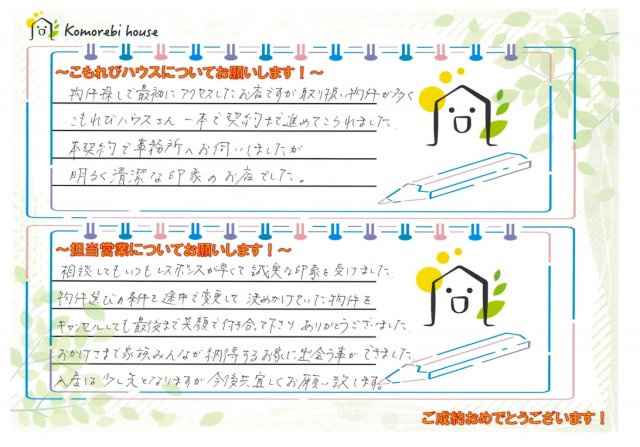 Komorebi house
〜こもれびハウスについてお願いします！〜
物件探しで最初にアクセスしたお店ですが取り扱い物件が多く
こもれびハウスさん一本で契約まで進めてこられました。
本契約で事務所へお伺いしましたが
明るく清潔な印象のお店でした。
〜担当営業についてお願いします！〜
相談してもいつもレスポンスが早くて誠実な印象を受けました。
物件選びの条件を途中で変更して決めかけていた物件を
キャンセルしても最後まで笑顔で付き合って下さりありがとうございました。
おかげさまで家族みんなが納得するお家に出会う事ができました。
入居は少し先となりますが今後共宜しくお願い致します。
ご成約おめでとうございます！